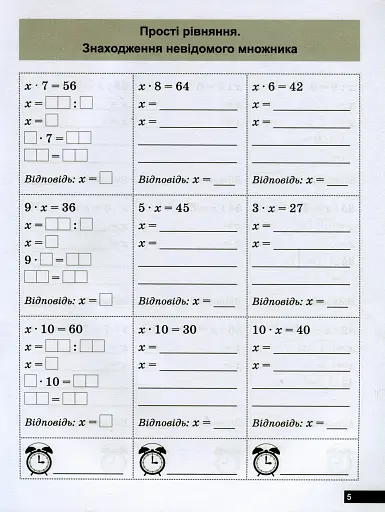 Прості рівняння.
Знаходження невідомого множника
x · 7 = 56
x = :
x =
· 7 =
=
Відповідь: x =
x · 8 = 64
x =
x =
Відповідь: x =
x · 6 = 42
x =
x =
Відповідь: x =
9 · x = 36
x = :
x =
9 · =
=
Відповідь: x =
5 · x = 45
x =
x =
Відповідь: x =
3 · x = 27
x =
x =
Відповідь: x =
x · 10 = 60
x = :
x =
· 10 =
=
Відповідь: x =
x · 10 = 30
x =
x =
Відповідь: x =
10 · x = 40
x =
x =
Відповідь: x =
5